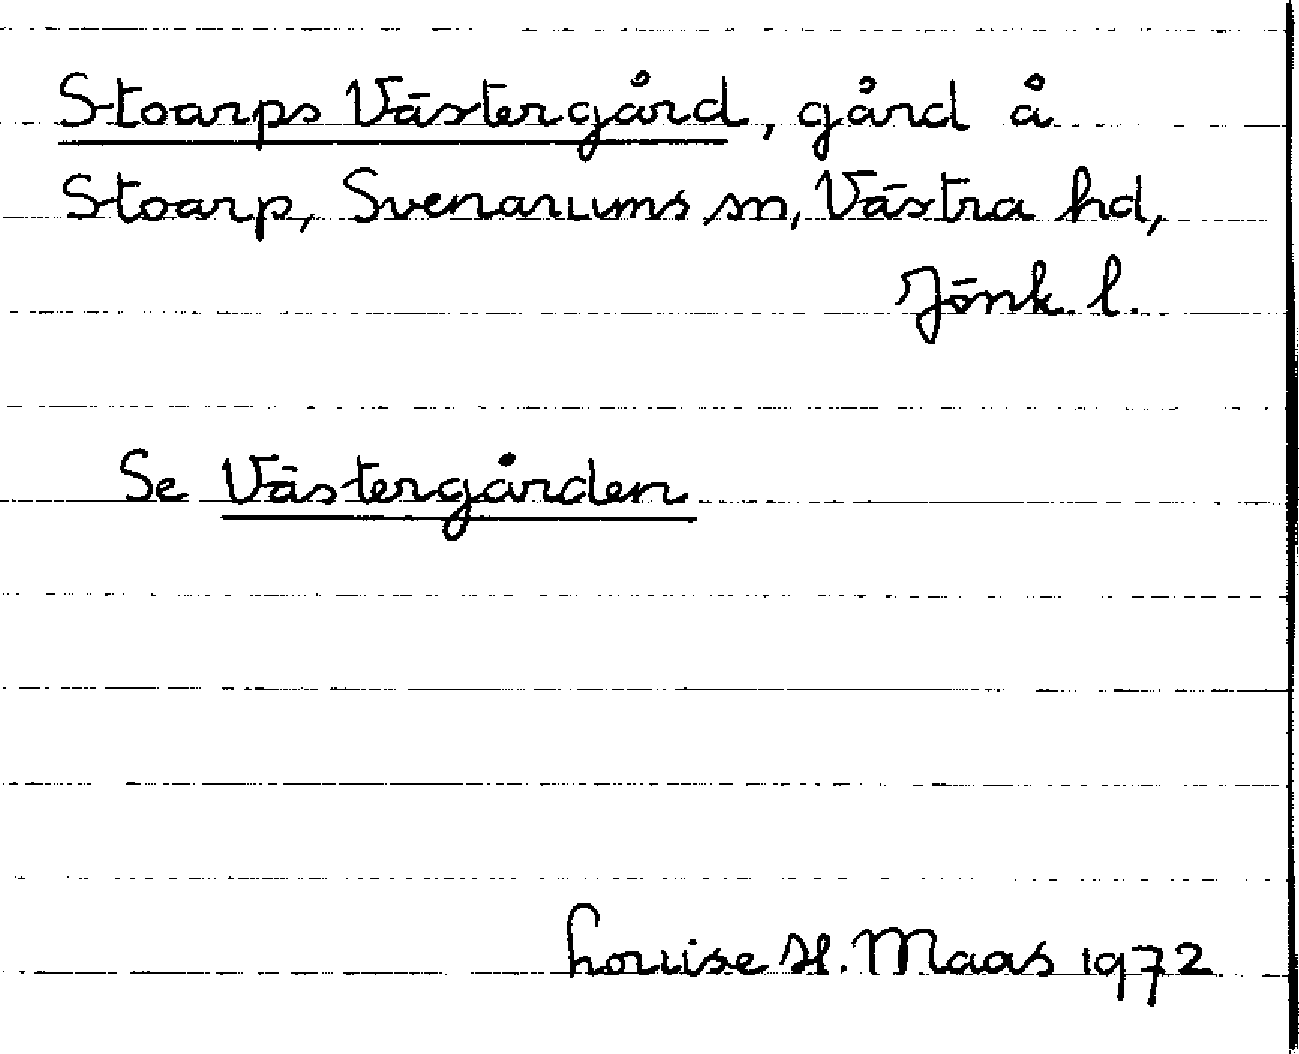 Stoarps Västergård, gård å
Stoarp, Svenarums sn, Västra hd,
Jönk. l.
Se Västergården
Louise H. Maas 1972